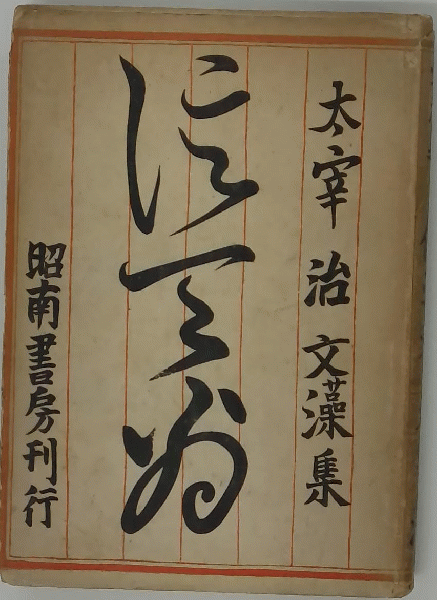 太宰治文藻集
信天翁
昭南書房刊行